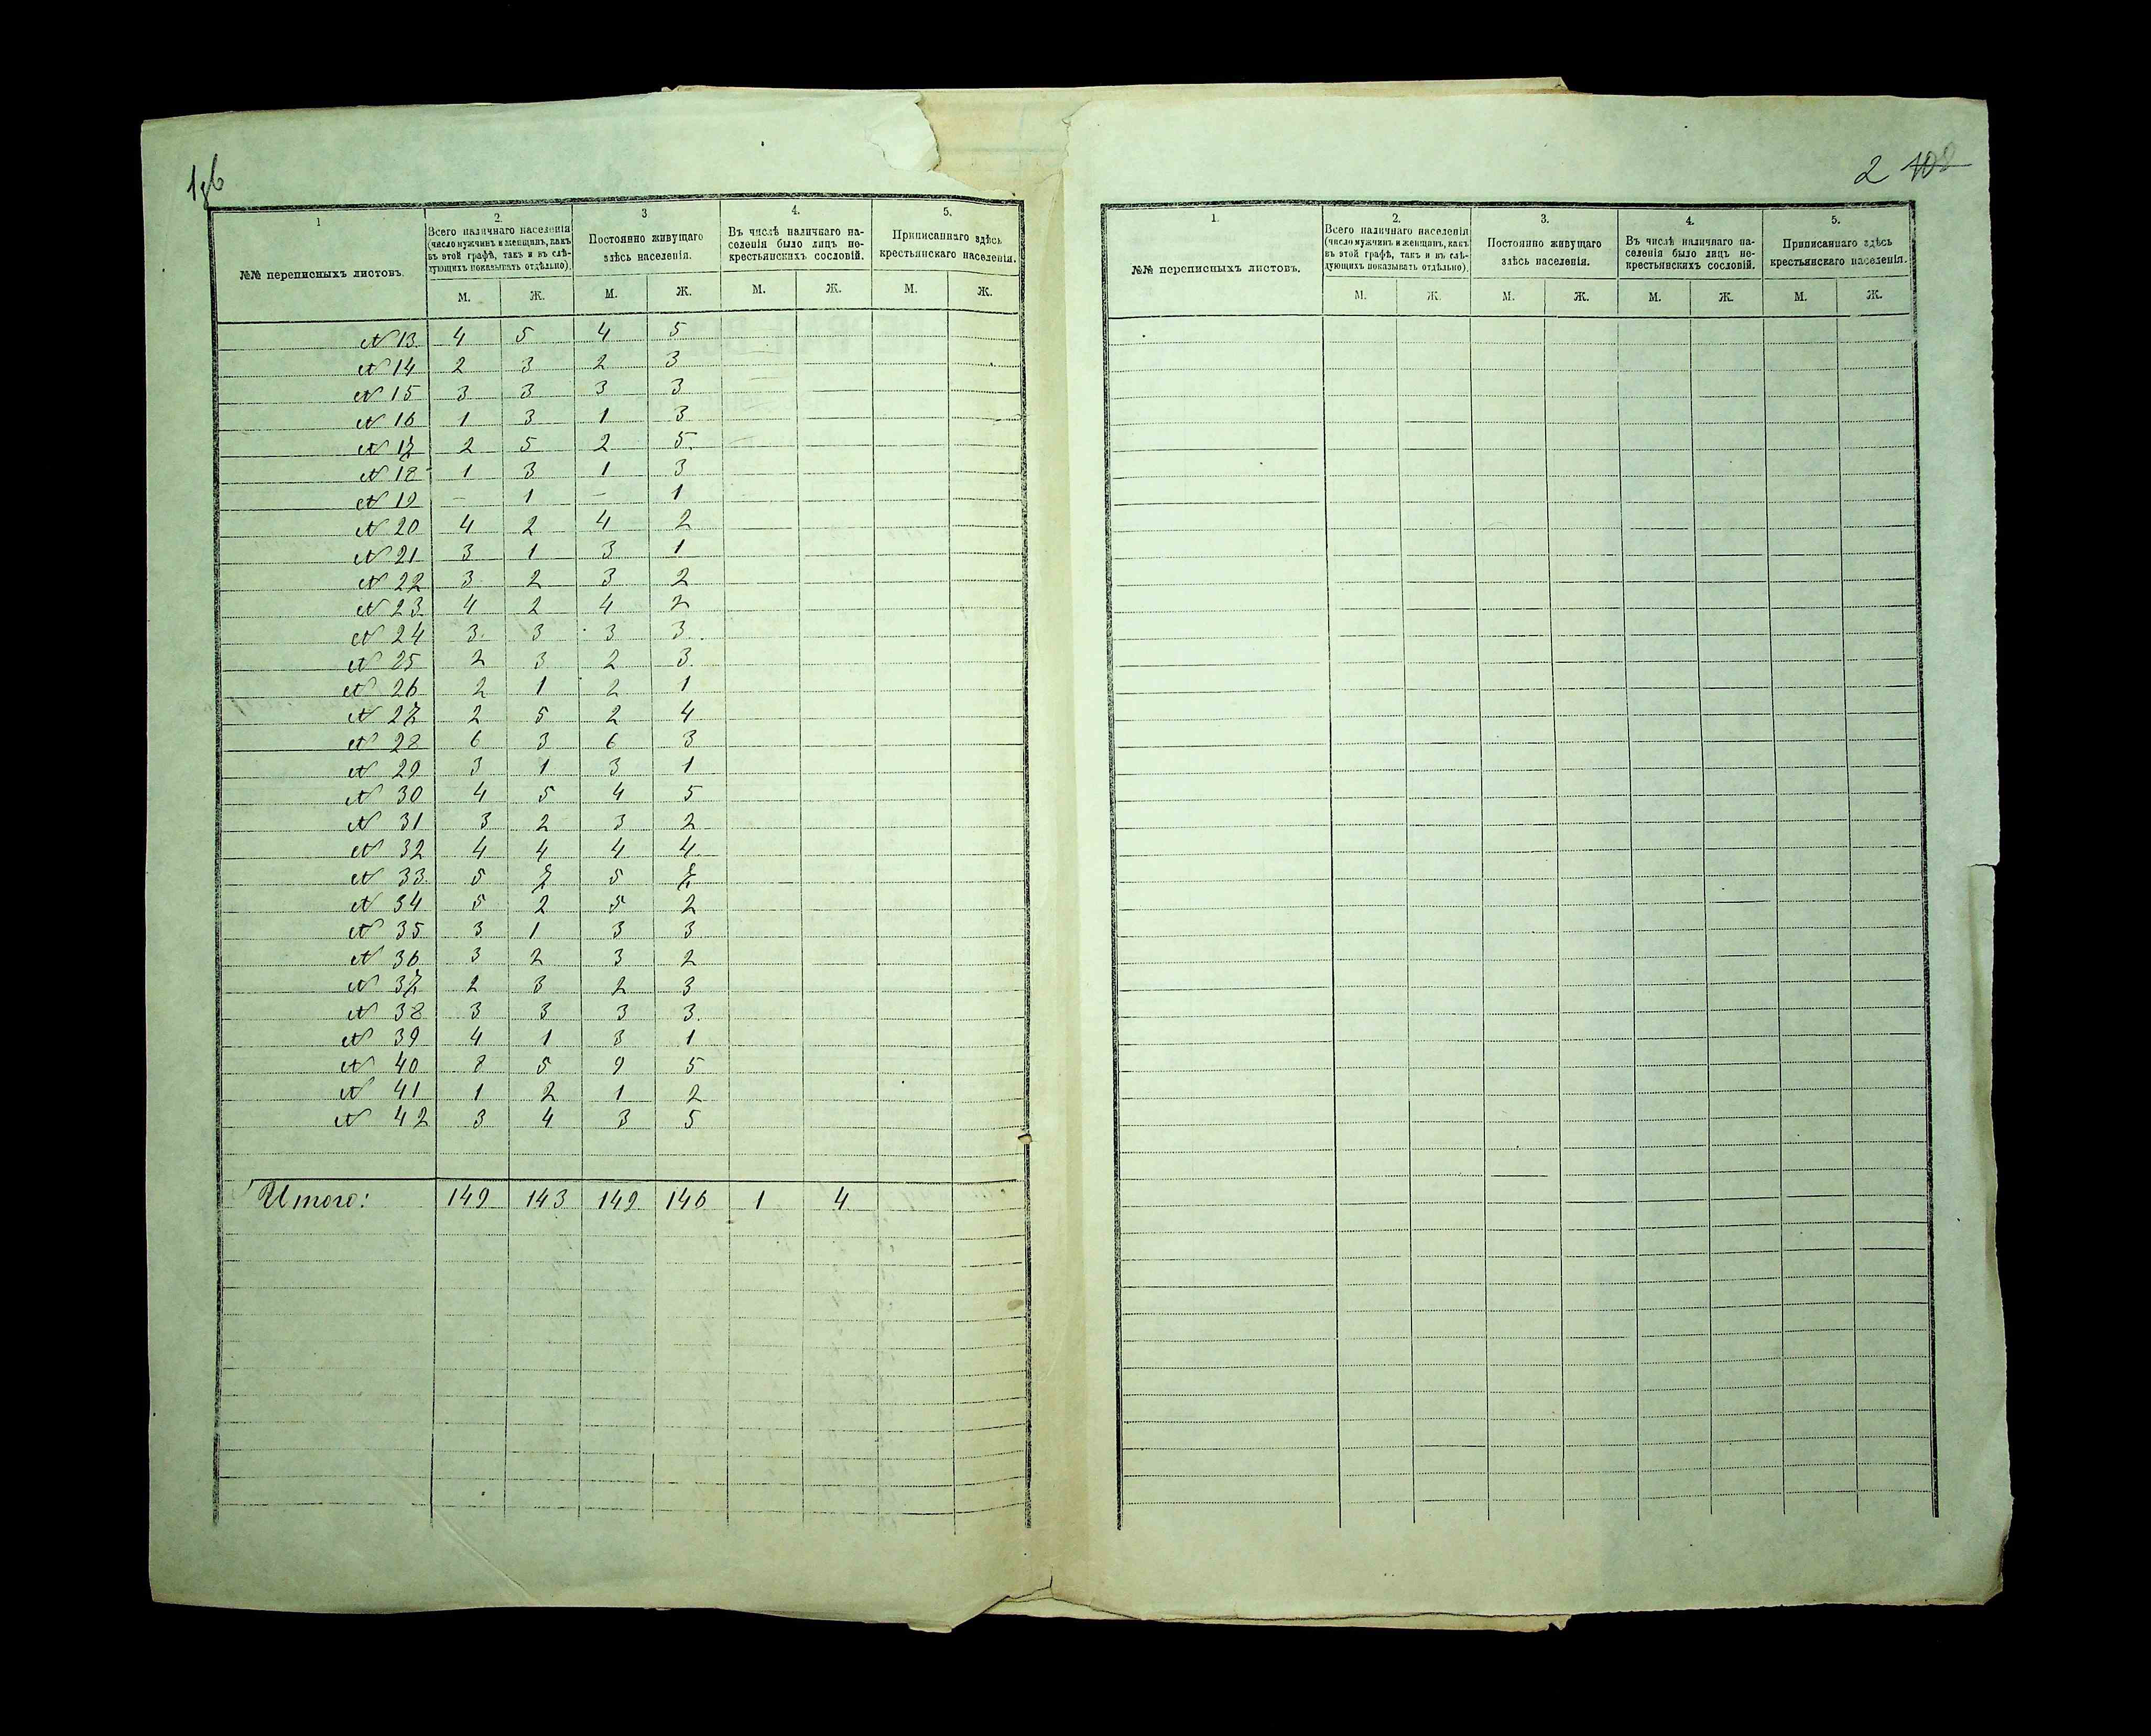 1
2.
3
4.
5.
№№ переписныхъ листовъ.
Всего наличнаго населенія (число мужчинъ и женщинъ, какъ въ этой графѣ, такъ и въ слѣдующихъ показывать отдѣльно).
Постоянно живущаго здѣсь населенія.
Въ числѣ наличнаго населенія было лицъ некрестьянскихъ сословій.
Приписаннаго здѣсь крестьянскаго населенія.
М. Ж. М. Ж. М. Ж. М. Ж.
№ 13 4 5 4 5
№ 14 2 3 2 3
№ 15 3 3 3 3
№ 16 1 3 1 3
№ 17 2 5 2 5
№ 18 1 3 1 3
№ 19 – 1 – 1
№ 20 4 2 4 2
№ 21 3 1 3 1
№ 22 3 2 3 2
№ 23 4 2 4 2
№ 24 3 3 3 3
№ 25 2 3 2 3
№ 26 2 1 2 1
№ 27 2 5 2 4
№ 28 6 3 6 3
№ 29 3 1 3 1
№ 30 4 5 4 5
№ 31 3 2 3 2
№ 32 4 4 4 4
№ 33 5 7 5 7
№ 34 5 2 5 2
№ 35 3 1 3 3
№ 36 3 2 3 2
№ 37 2 3 2 3
№ 38 3 3 3 3
№ 39 4 1 3 1
№ 40 8 5 9 5
№ 41 1 2 1 2
№ 42 3 4 3 5
Итого: 149 143 149 146 1 4
2 108
1.
2.
3.
4.
5.
№№ переписныхъ листовъ.
Всего наличнаго населенія (число мужчинъ и женщинъ, какъ въ этой графѣ, такъ и въ слѣдующихъ показывать отдѣльно).
Постоянно живущаго здѣсь населенія.
Въ числѣ наличнаго населенія было лицъ некрестьянскихъ сословій.
Приписаннаго здѣсь крестьянскаго населенія.
М. Ж. М. Ж. М. Ж. М. Ж.